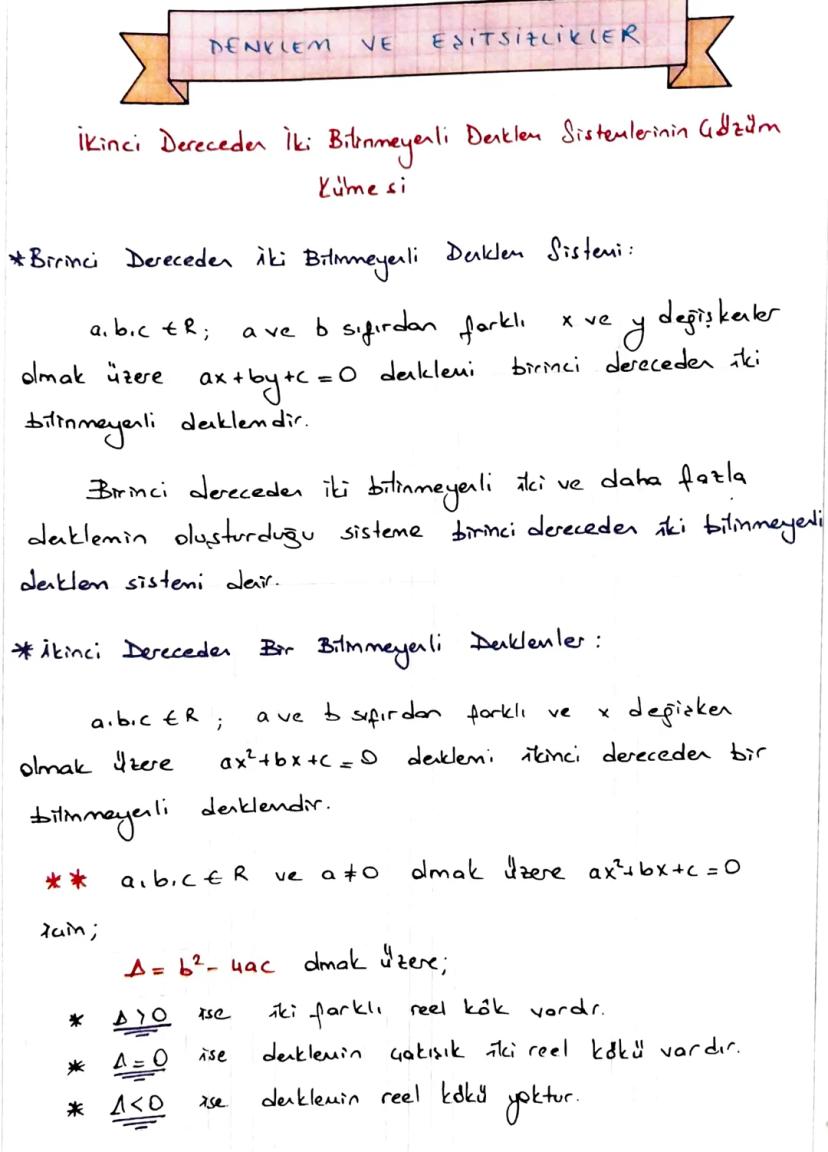 DENKLEM VE EŞİTSİZLİKLER
İkinci Dereceden İki Bilinmeyenli Denklem Sistemlerinin Çözüm
Kümesi
*Birinci Dereceden İki Bilinmeyenli Denklem Sistemi:
a,b,c ∈ R; a ve b sıfırdan farklı x ve y değişkenler
olmak üzere ax+by+c=0 denklemi birinci dereceden iki
bilinmeyenli denklemdir.
Birinci dereceden iki bilinmeyenli iki ve daha fazla
denklemin oluşturduğu sisteme birinci dereceden iki bilinmeyenli
denklem sistemi denir.
* İkinci Dereceden Bir Bilinmeyenli Denklemler:
a,b,c ∈ R ; a ve b sıfırdan farklı ve x değişken
olmak üzere ax²+bx+c=0 denklemi ikinci dereceden bir
bilinmeyenli denklemdir.
** a,b,c ∈ R ve a≠0 olmak üzere ax²+bx+c=0
için;
Δ= b²-4ac olmak üzere;
* Δ>0 ise iki farklı reel kök vardır.
* Δ=0 ise denklemin çakışık iki reel kökü vardır.
* Δ<0 ise denklemin reel kökü yoktur.